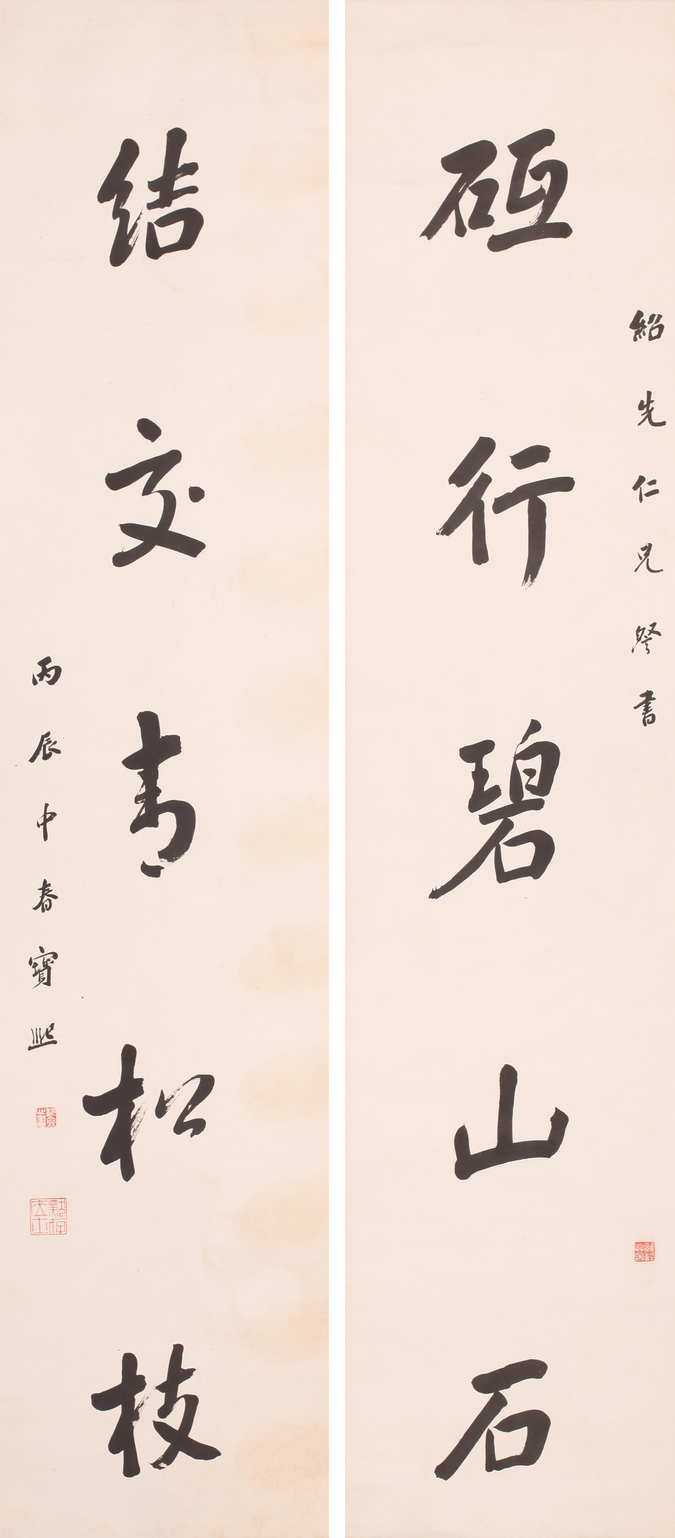 紹先仁兄詧書
砥行碧山石
結交青松枝
丙辰中春寶熙